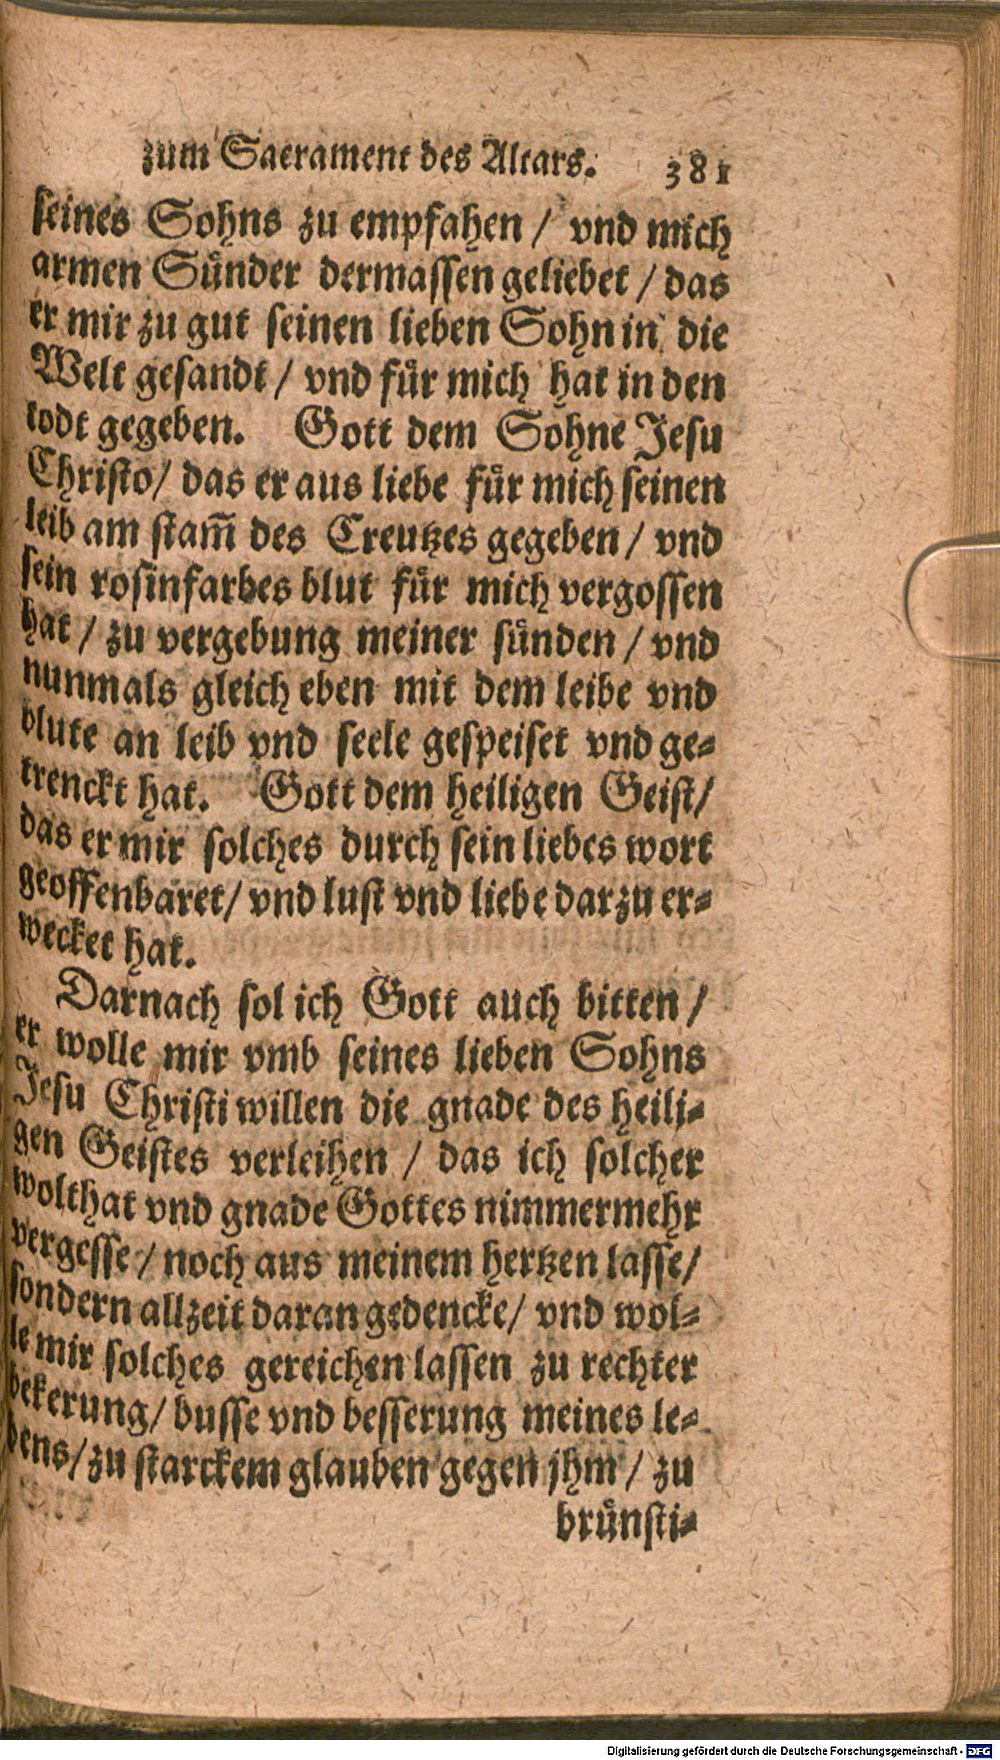 zum Sacrament des Altars. 381
seines Sohns zu empfahen / vnd mich
armen Sünder dermassen geliebet / das
er mir zu gut seinen lieben Sohn in die
Welt gesandt / vnd für mich hat in den
todt gegeben. Gott dem Sohne Jesu
Christo / das er aus liebe für mich seinen
leib am stam̃ des Creutzes gegeben / vnd
sein rosinfarbes blut für mich vergossen
hat / zu vergebung meiner sünden / vnd
nunmals gleich eben mit dem leibe vnd
blute an leib vnd seele gespeiset vnd ge-
trenckt hat. Gott dem heiligen Geist /
das er mir solches durch sein liebes wort
geoffenbaret / vnd lust vnd liebe darzu er-
wecket hat.
Darnach sol ich Gott auch bitten /
er wolle mir vmb seines lieben Sohns
Jesu Christi willen die gnade des heili-
gen Geistes verleihen / das ich solcher
wolthat vnd gnade Gottes nimmermehr
vergesse / noch aus meinem hertzen lasse /
sondern allzeit daran gedencke / vnd wol-
le mir solches gereichen lassen zu rechter
bekerung / busse vnd besserung meines le-
bens / zu starckem glauben gegen jhm / zu
brünsti-
Digitalisierung gefördert durch die Deutsche Forschungsgemeinschaft - DFG